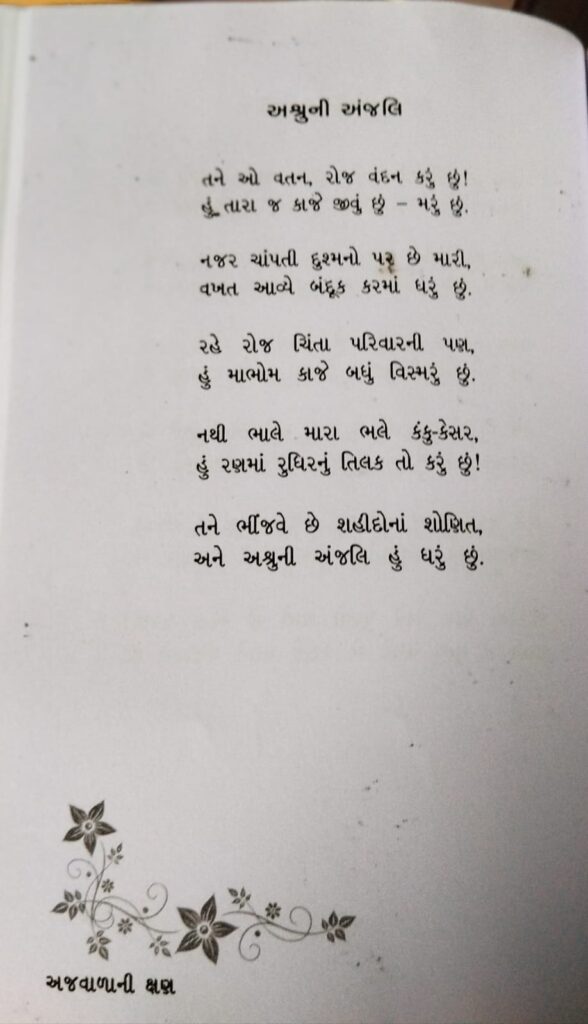 અશ્રુની અંજલિ
તને ઓ વતન, રોજ વંદન કરું છું!
હું તારા જ કાજે જીવું છું – મરું છું.
નજર ચાંપતી દુશ્મનો પર છે મારી,
વખત આવ્યે બંદૂક કરમાં ધરું છું.
રહે રોજ ચિંતા પરિવારની પણ,
હું માભોમ કાજે બધું વિસ્મરું છું.
નથી ભાલે મારા ભલે કંકુ-કેસર,
હું રણમાં રુધિરનું તિલક તો કરું છું!
તને ભીંજવે છે શહીદોનાં શોણિત,
અને અશ્રુની અંજલિ હું ધરું છું.
અજવાળાની ક્ષણ